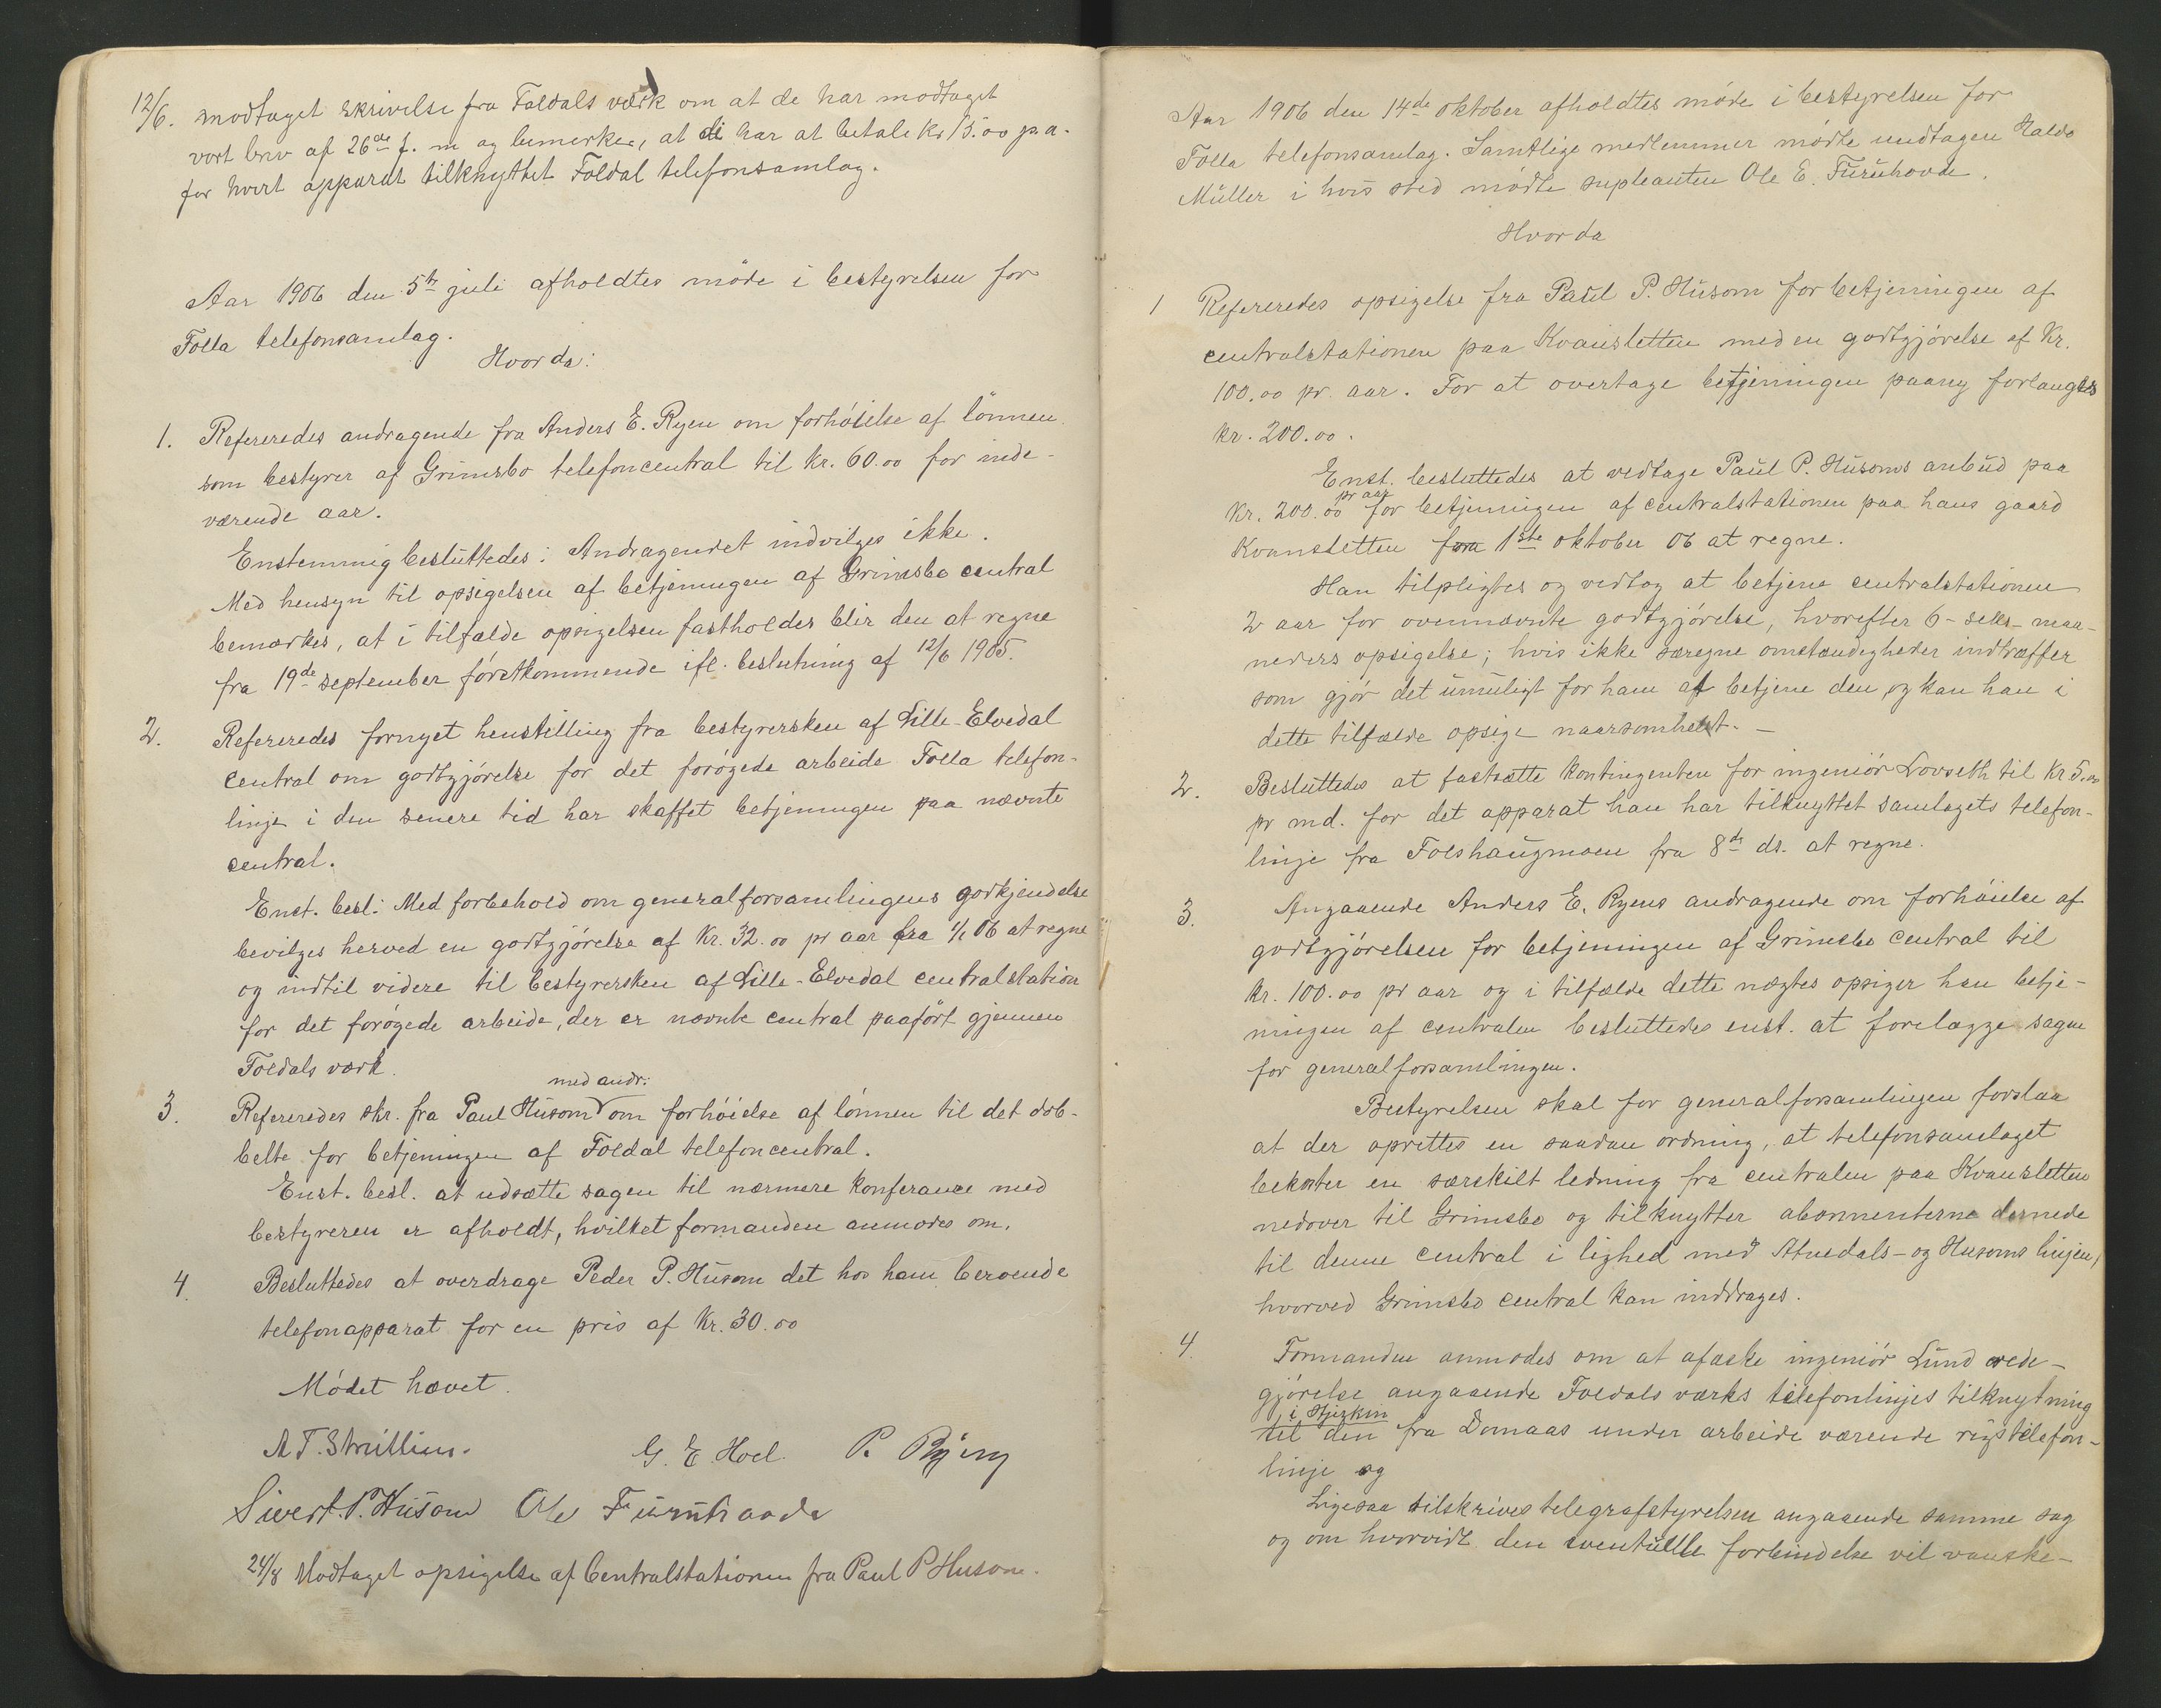 12/6. modtaget skrivelse fra Foldals værk om at de har modtaget
vort brev af 26de f. m og bemerker, at di har at betale Kr 15.00 p a.
for hvert apparat tilknyttet Foldal telefonsamlag.
Aar 1906 den 5te juli afholdtes møde i bestyrelsen for
Folla telefonsamlag.
Hvor da:
1. Refereredes andragende fra Anders E. Ryen om forhøielse af lønnen
som bestyrer af Grimsbo telefoncentral til kr. 60.00 for inde-
værende aar.
Enstemmig besluttedes: Andragendet indvilges ikke.
Med hensyn til opsigelsen af betjeningen af Grimsbo central
bemærkes, at i tilfælde opsigelsen fastholdes blir den at regne
fra 19de september førstkommende ifl. beslutning af 12/6 1905.
2. Refereredes fornyet henstilling fra bestyrersken af Lille-Elvedal
central om godtgjørelse for det forøgede arbeide Folla telefon-
linje i den senere tid har skaffet betjeningen paa nævnte
central.
Enst. besl: Med forbehold om generalforsamlingens godkjendelse
bevilges herved en godtgjørelse af Kr. 32.00 pr aar fra 1/1 06 at regne
og indtil videre til bestyrersken af Lille-Elvedal centralstation
for det forøgede arbeide, der er nævnte central paaført gjennem
Foldals værk.
med andr:
3. Refereredes skr. fra Paul Husom om forhøielse af lønnen til det dob-
belte for betjeningen af Foldal telefoncentral.
Enst. besl. at udsætte sagen til nærmere konferance med
bestyreren er afholdt, hvilket formanden anmodes om.
4. Besluttedes at overdrage Peder P. Husom det hos ham beroende
telefonapparat for en pris af Kr. 30.00
Mødet hævet.
A T. Streitlien. G. E. Hoel. P. Ryeng
Sivert. P. Husom Ole Furuhaade
24/8 Modtaget opsigelse af Centralstationen fra Paul P Husom.
Aar 1906 den 14de oktober afholdtes møde i bestyrelsen for
Folla telefonsamlag. Samtlige medlemmer mødte undtagen Haldo
Müller i hvis sted mødte supleanten Ole E. Furuhovde.
Hvor da
1 Refereredes opsigelse fra Paul P. Husom for betjeningen af
centralstationen paa Kvansletten med en godtgjørelse af Kr.
100.00 pr. aar. For at overtage betjeningen paany forlanges
kr. 200.00.
Enst. besluttedes at vedtage Paul P. Husoms anbud paa
pr aar
Kr. 200.00 for betjeningen af centralstationen paa hans gaard
Kvansletten fra 1ste oktober 06 at regne.
Han tilpligtes og vedtog at betjene centralstationen
2 aar for ovennævnte godtgjørelse, hvorefter 6 - seks - maa-
neders opsigelse; hvis ikke særegne omstændigheder indtræffer
som gjør det umuligt for ham at betjene den og kan han i
dette tilfælde opsige naarsomhelst. -
2. Besluttedes at fastsætte kontingenten for ingeniør Lovseth til Kr 5.00
pr md. for det apparat han har tilknyttet samlagets telefon-
linje fra Folshaugmoen fra 8de ds. at regne.
3. Angaaende Anders E. Ryens andragende om forhøielse af
godtgjørelsen for betjeningen af Grimsbo central til
kr. 100.00 pr aar og i tilfælde dette nægtes opsiger han betje-
ningen af centralen besluttedes enst. at forelægge sagen
for generalforsamlingen.
Bestyrelsen skal for generalforsamlingen forslaa
at der oprettes en saadan ordning, at telefonsamlaget
bekoster en særskilt ledning fra centralen paa Kvansletten
nedover til Grimsbo og tilknytter abonnenterne dernede
til denne central i lighed med Atnedals- og Husoms linjen,
hvorved Grimsbo central kan inddrages.
4. Formanden anmodes om at afæske ingeniør Lund rede-
gjørelse angaaende Foldals værks telefonlinjes tilknytning
i Hjerkin
til den fra Domaas under arbeide værende rigstelefon-
linje og
Ligesaa tilskrives telegrafstyrelsen angaaende samme sag
og om hvorvidt den eventuelle forbindelse vil vanske-